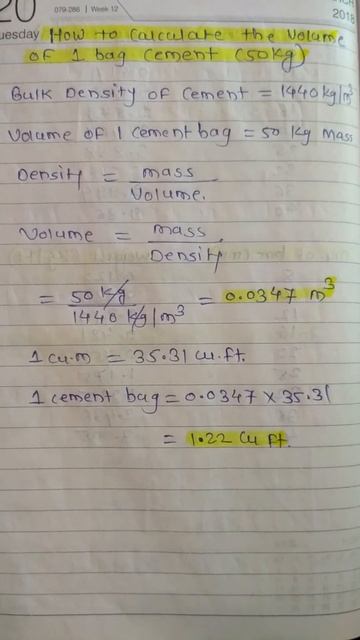 20
079-286 | Week 12
2018
uesday How to calculate the volume
of 1 bag cement (50kg)
Bulk Density of cement = 1440 kg/m³
Volume of 1 cement bag = 50 kg mass
Density = mass
Volume.
Volume = mass
Density
= 50 kg
1440 kg/m³ = 0.0347 m³
1 cu.m = 35.31 cu.ft.
1 cement bag = 0.0347 x 35.31
= 1.22 Cu ft.